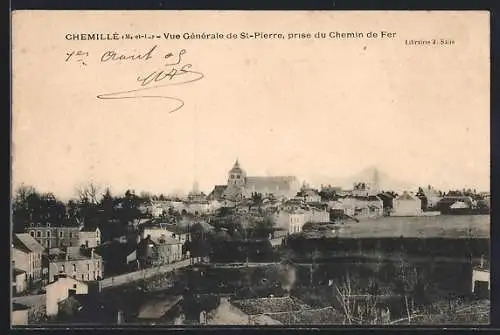 CHEMILLÉ (M.-et-L.) – Vue Générale de St-Pierre, prise du Chemin de Fer
Librairie J. Salle
Août 05